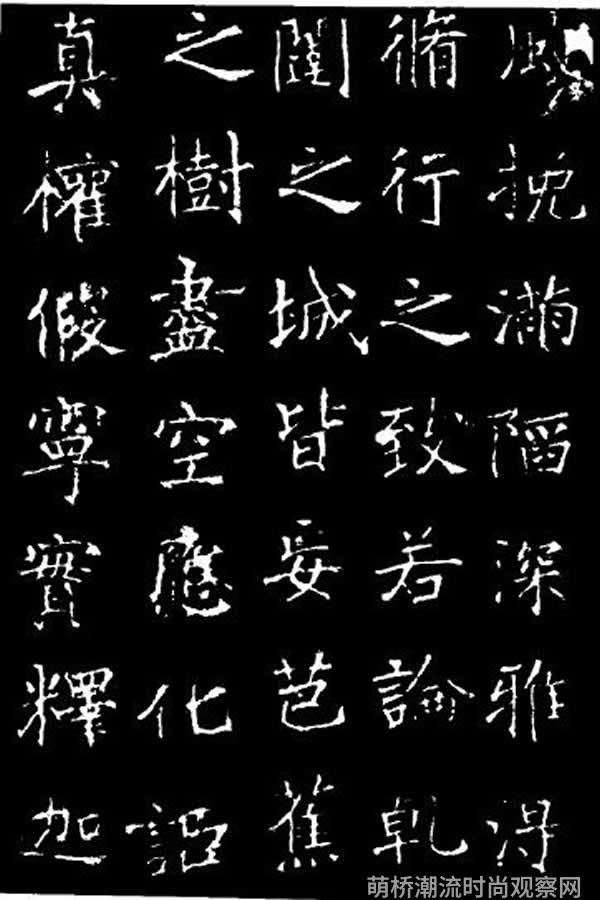 風挽滿陷深雅得
脩行之致若論乹
闥之城皆妄芭蕉
之樹盡空應化詎
真權假寧實釋迦
萌桥潮流时尚观察网